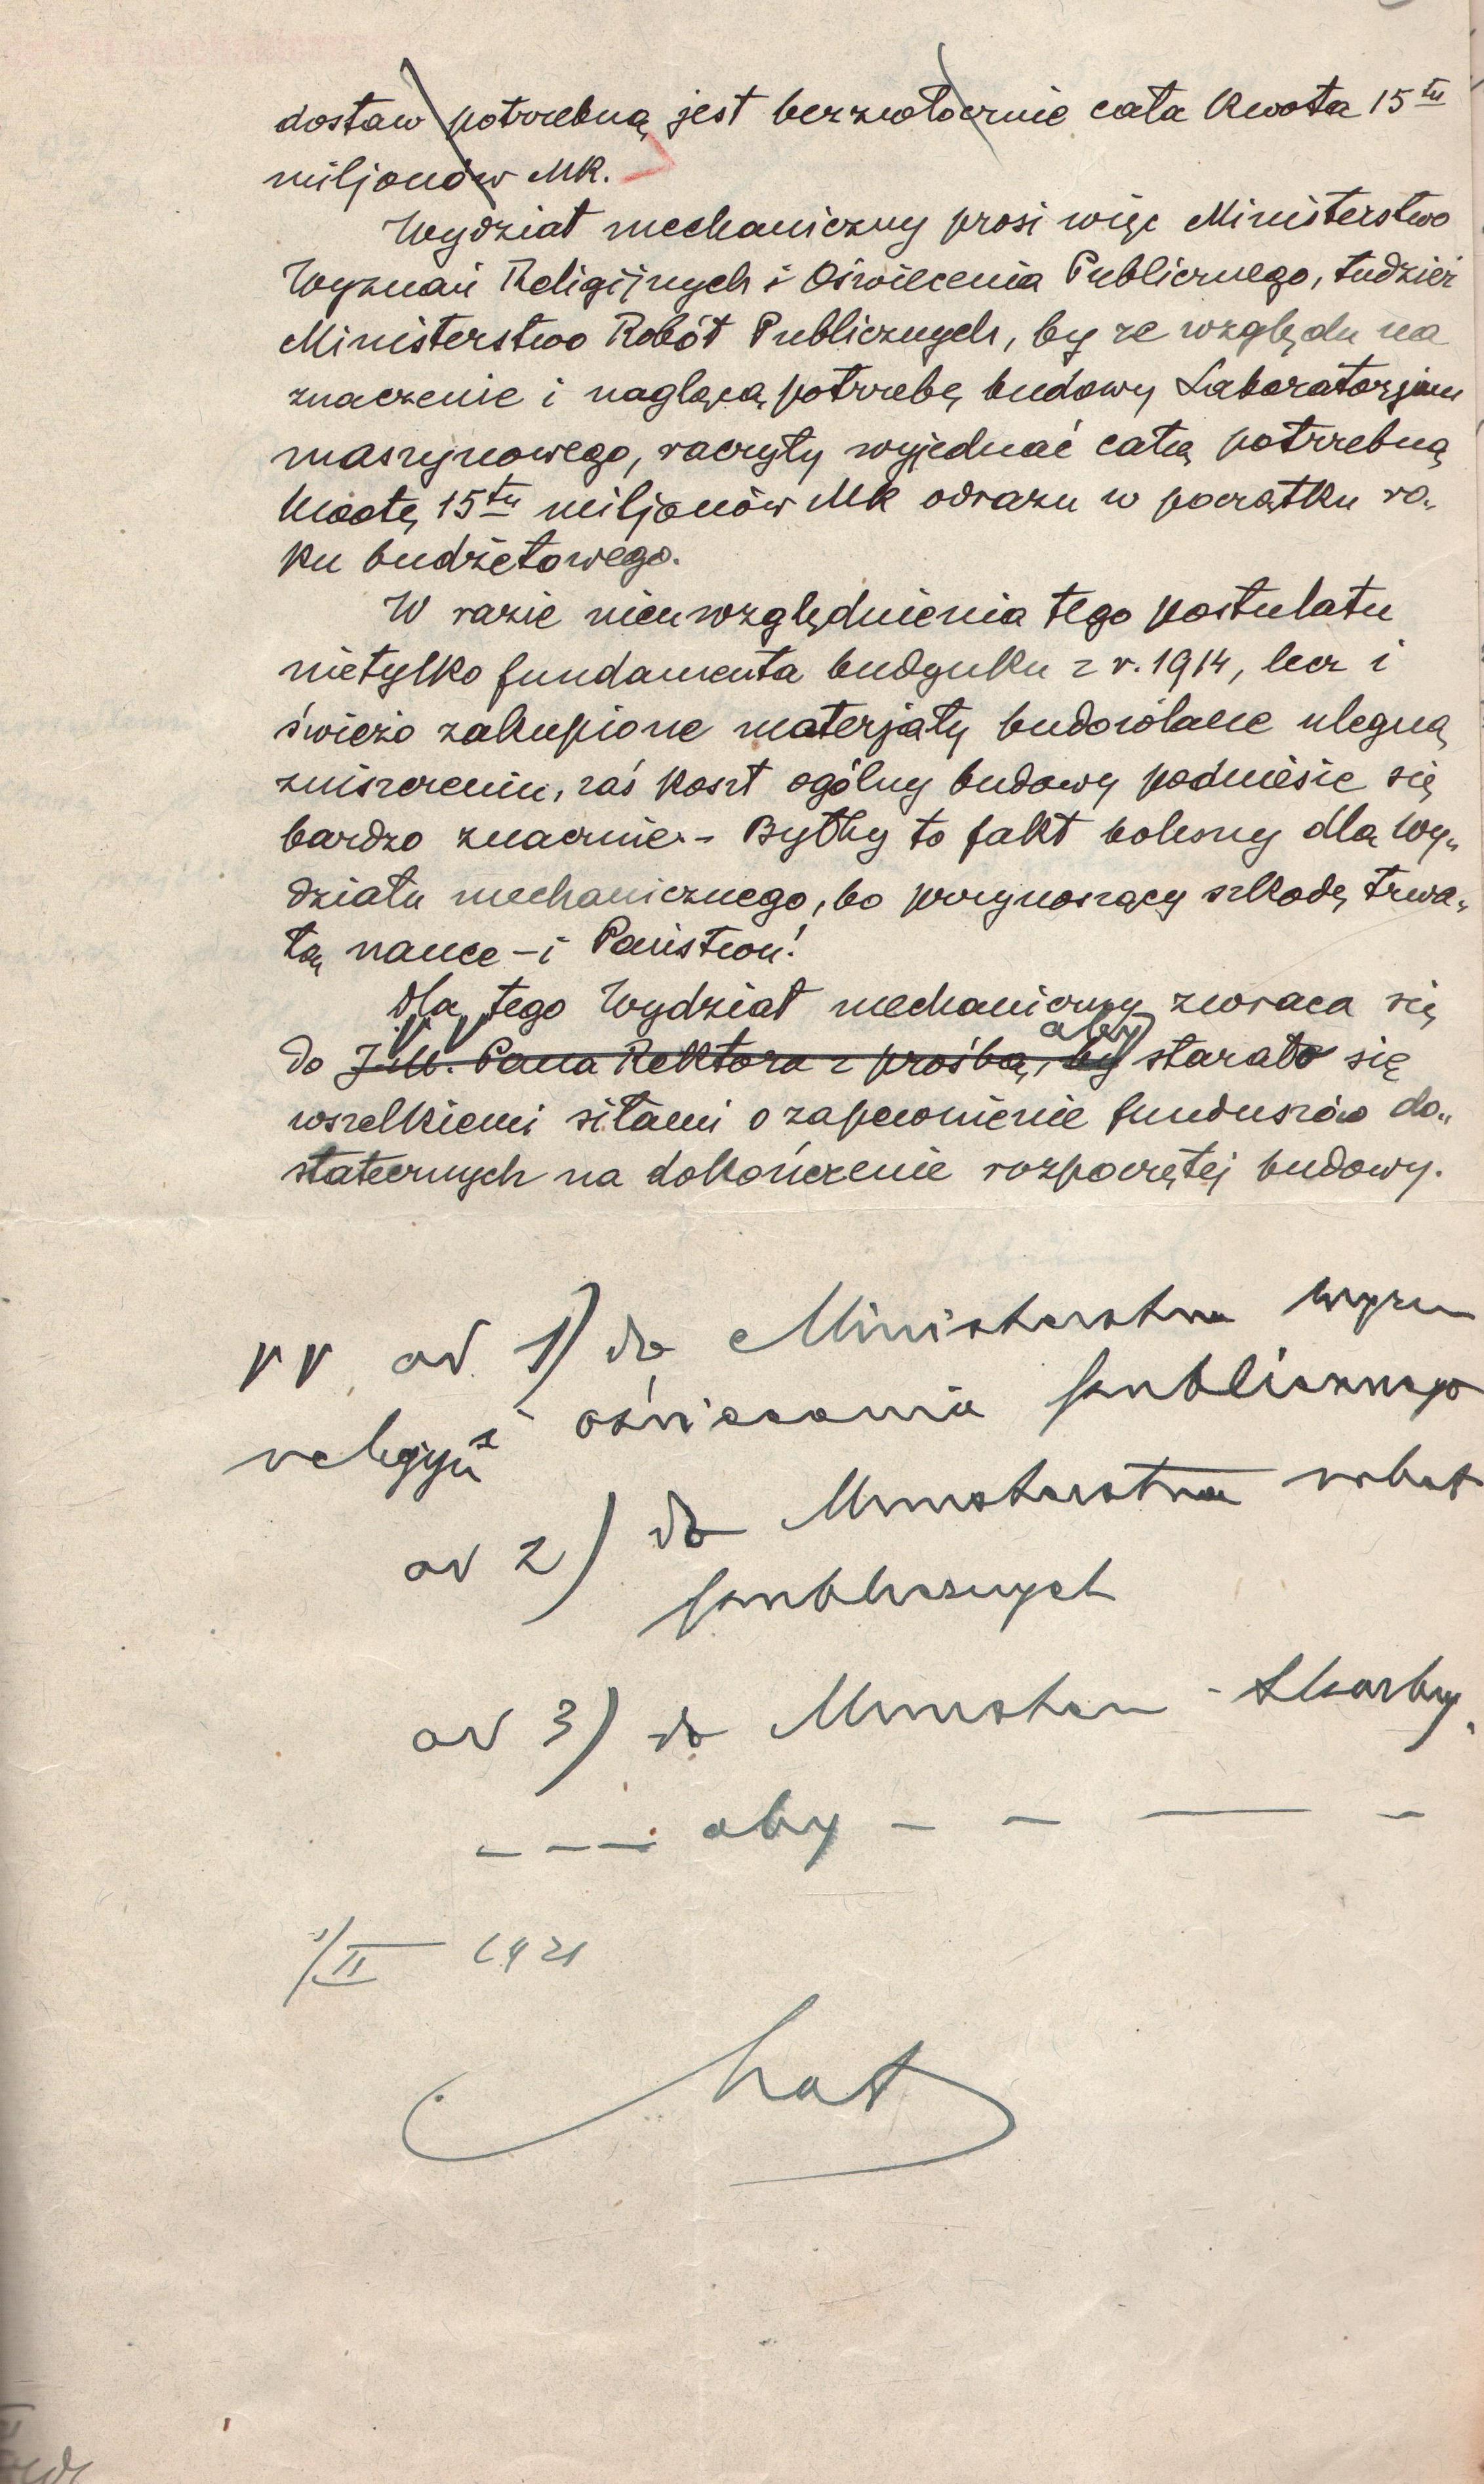 dostaw potrzebną jest bezzwłocznie cała kwota 15tu
miljonów Mk.
Wydział mechaniczny prosi więc Ministerstwo
Wyznań Religijnych i Oświecenia Publicznego, tudzież
Ministerstwo Robót Publicznych, by ze względu na
znaczenie i naglącą potrzebę budowy Laboratorjum
maszynowego, raczyły wyjednać całą potrzebną
kwotę 15tu miljonów Mk odrazu w początku ro„
ku budżetowego.
W razie nieuwzględnienia tego postulatu
nietylko fundamenta budynku z r. 1914, lecz i
świeżo zakupione materjały budowlane ulegną
zniszczeniu, zaś koszt ogólny budowy podniesie się
bardzo znacznie. - Byłby to fakt bolesny dla Wy„
działu mechanicznego, bo przynoszący szkodę trwa„
łą nauce - i Państwu!
Dla tego Wydział mechaniczny zwraca się
aby
do J.M. Pana Rektora z prośbą, by starało się
wszelkiemi siłami o zapewnienie funduszów do„
statecznych na dokończenie rozpoczętej budowy.
VV ad 1) do Ministerstwa wyzn
religijn i oświecenia publicznego
ad 2) do Ministerstwa robót
publicznych
ad 3) do Minister - Skarby.
— — — aby — — — —
1/II 1921